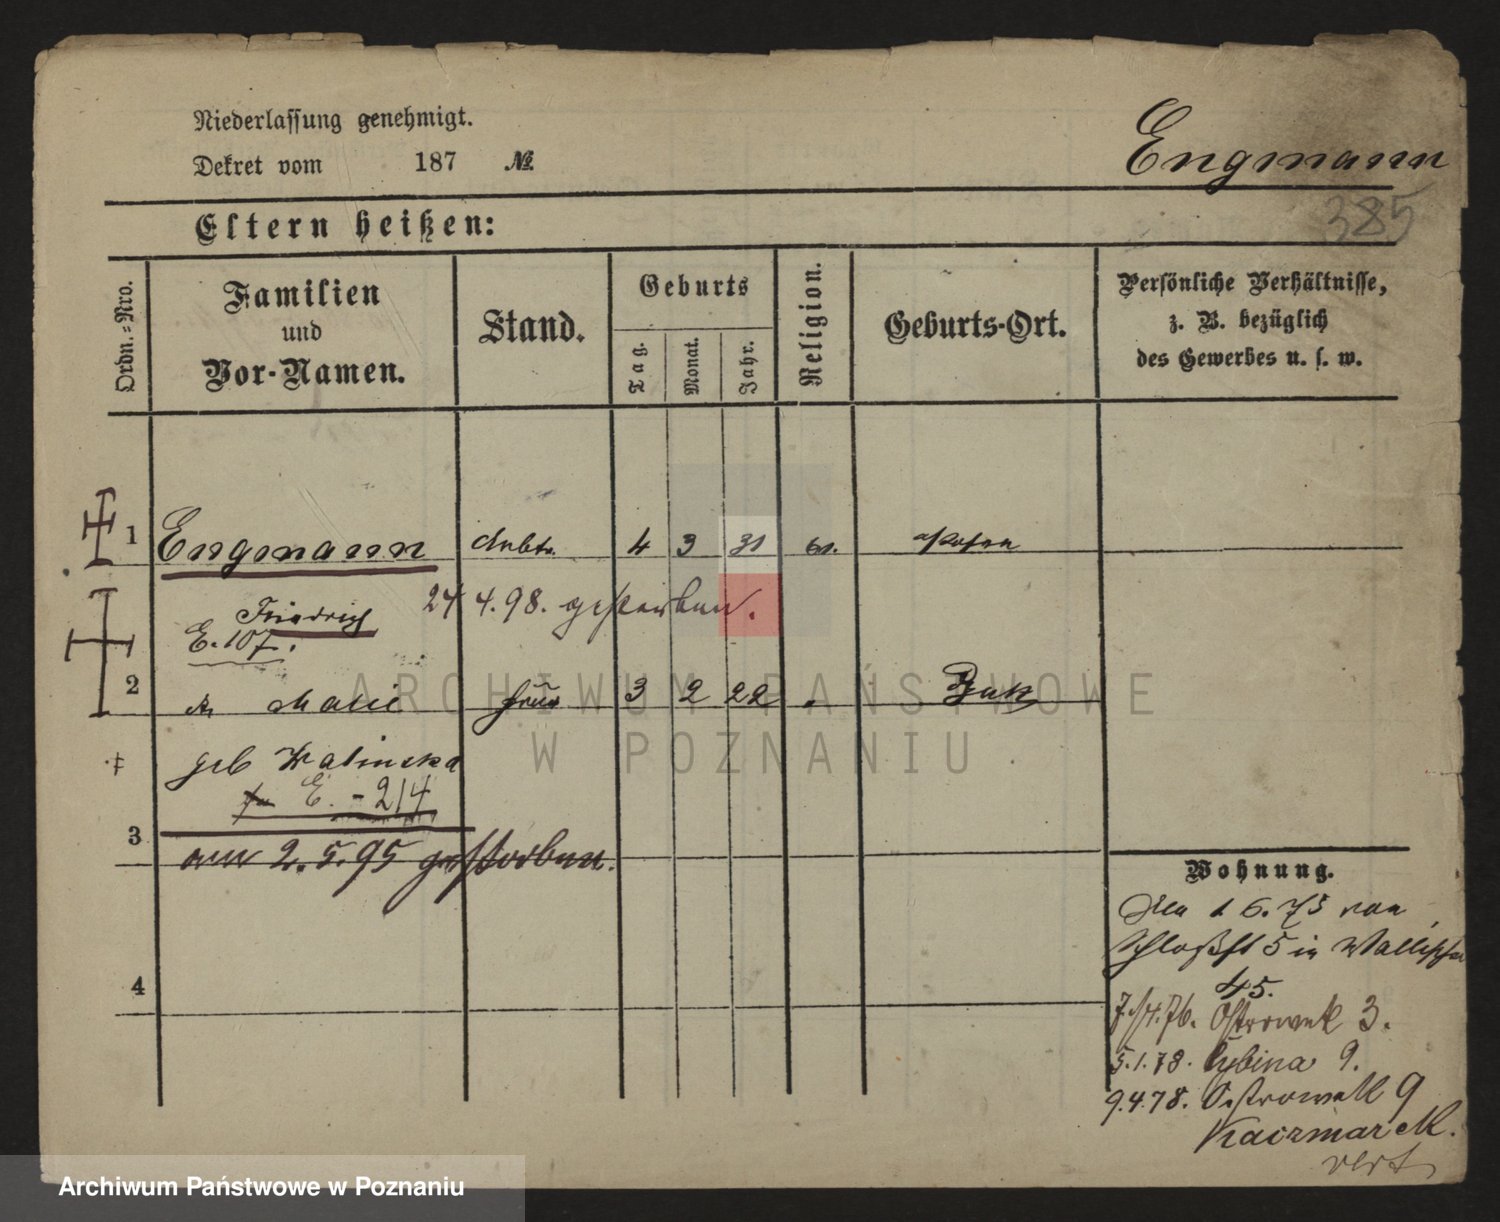 Niederlassung genehmigt.
Dekret vom 187 №
Engmann
385
Eltern heißen:
Ordn.-Nro.
Familien und Vor-Namen.
Stand.
Geburts
Tag.
Monat.
Jahr.
Religion.
Geburts-Ort.
Persönliche Verhältnisse,
z. B. bezüglich
des Gewerbes u. s. w.
1 Engmann Arbtr. 4 3 31 ev. Posen
Friedrich 24 4.98. gestorben.
E. 107.
2 Marie Frau 3 2 22 Buk
geb Walinska
E. - 214
3
am 2.5.95 gestorben.
4
Wohnung.
1 6. 75 von
Schloßst 5 in Wallischei
45.
7./4.76. Ostrowek 3.
5.1.78. Cybina 9.
9.4.78. Ostrowek 9
Kaczmarek.
ARCHIWUM PAŃSTWOWE
W POZNANIU
Archiwum Państwowe w Poznaniu